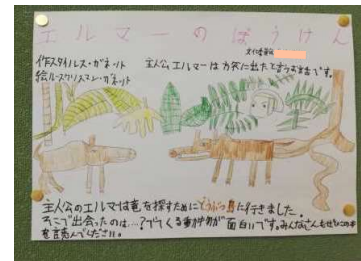 エルマーのぼうけん
作スタイルス・ガネット
絵ルースクリスマン・ガネット
主人公エルマーは
です。
主人公のエルマは竜を探すためにどうぶつ島に行きました。
そこで出会ったのは…?でてくる動物が面白いです。みんなさんもぜひこの本
を読んでください。